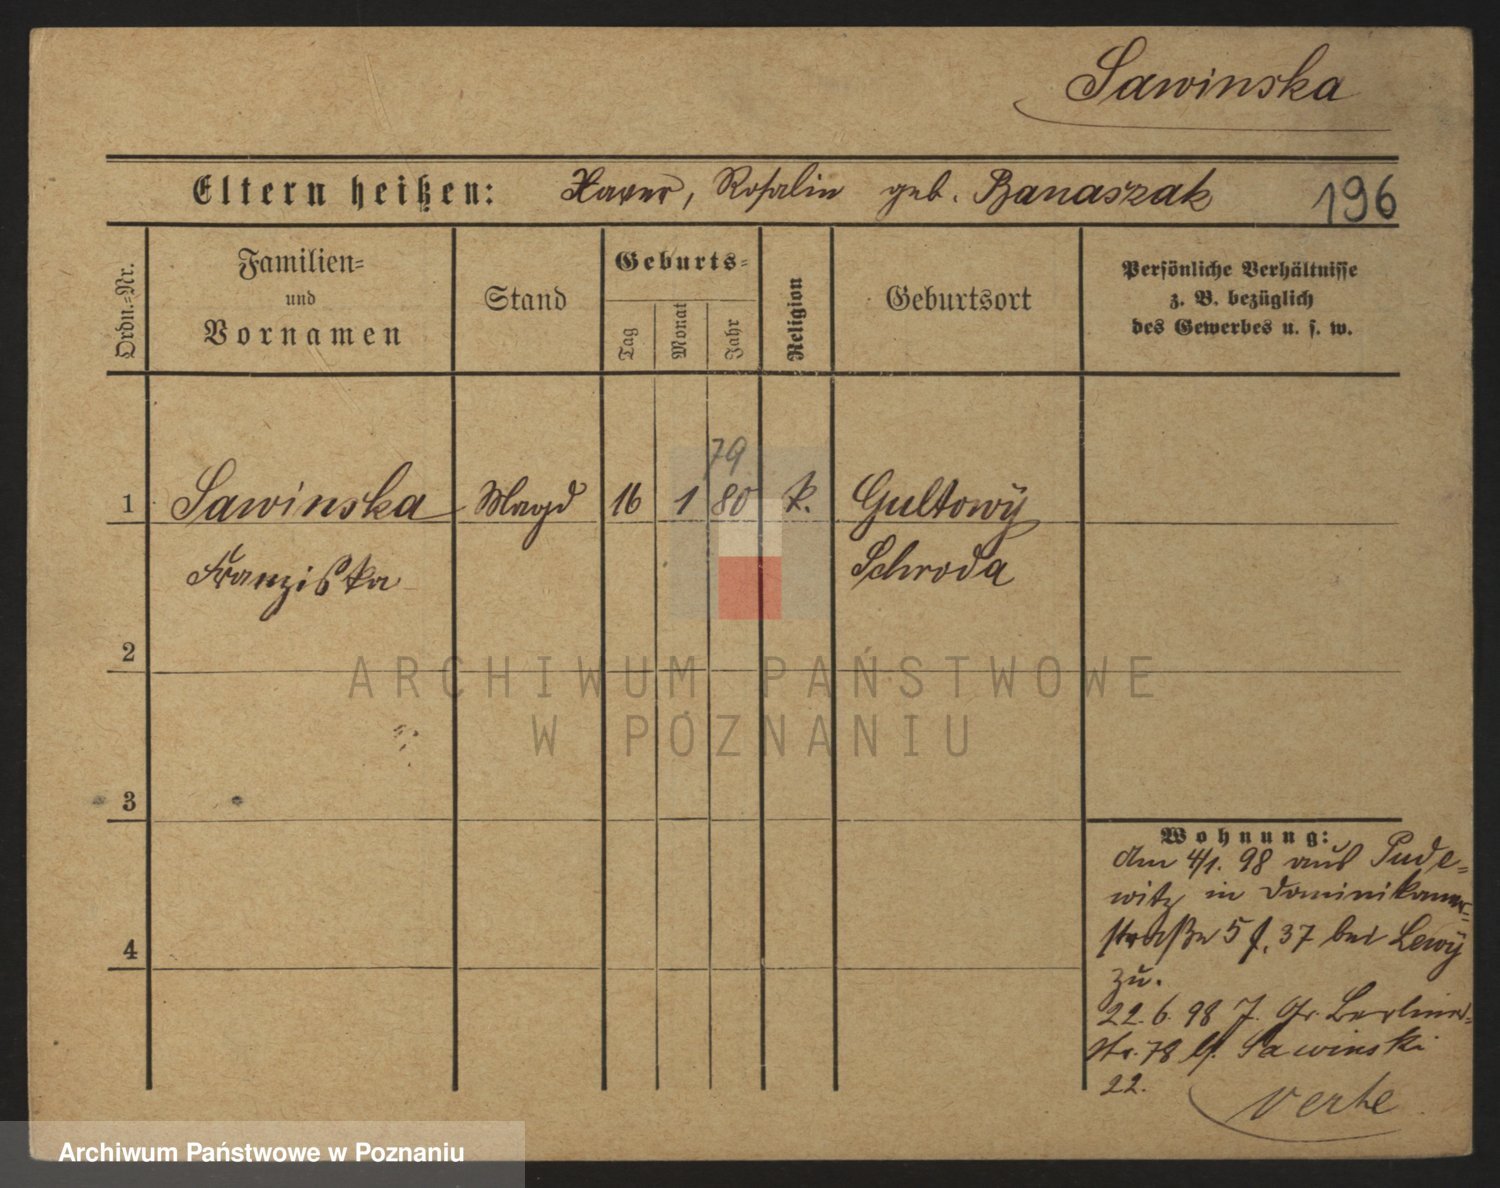 Sawinska
Eltern heißen: Xaver, Rosalin geb. Banaszak 196
Ordn.-Nr.
Familien-
und
Vornamen
Stand
Geburts-
Tag
Monat
Jahr
Religion
Geburtsort
Persönliche Verhältnisse
z. B. bezüglich
des Gewerbes u. s. w.
79
1 Sawinska Magd 16 1 80 k. Gultowÿ
Franziska Schroda
2
3
4
Wohnung:
Am 4/1. 98 aus Pude-
witz in Dominikaner-
straße 5 f. 37 bei Lewÿ
zu.
22. 6. 98 J. Gr. Berliner-
str. 78 b. Sawinski
22.
verte
ARCHIWUM PAŃSTWOWE
W POZNANIU
Archiwum Państwowe w Poznaniu